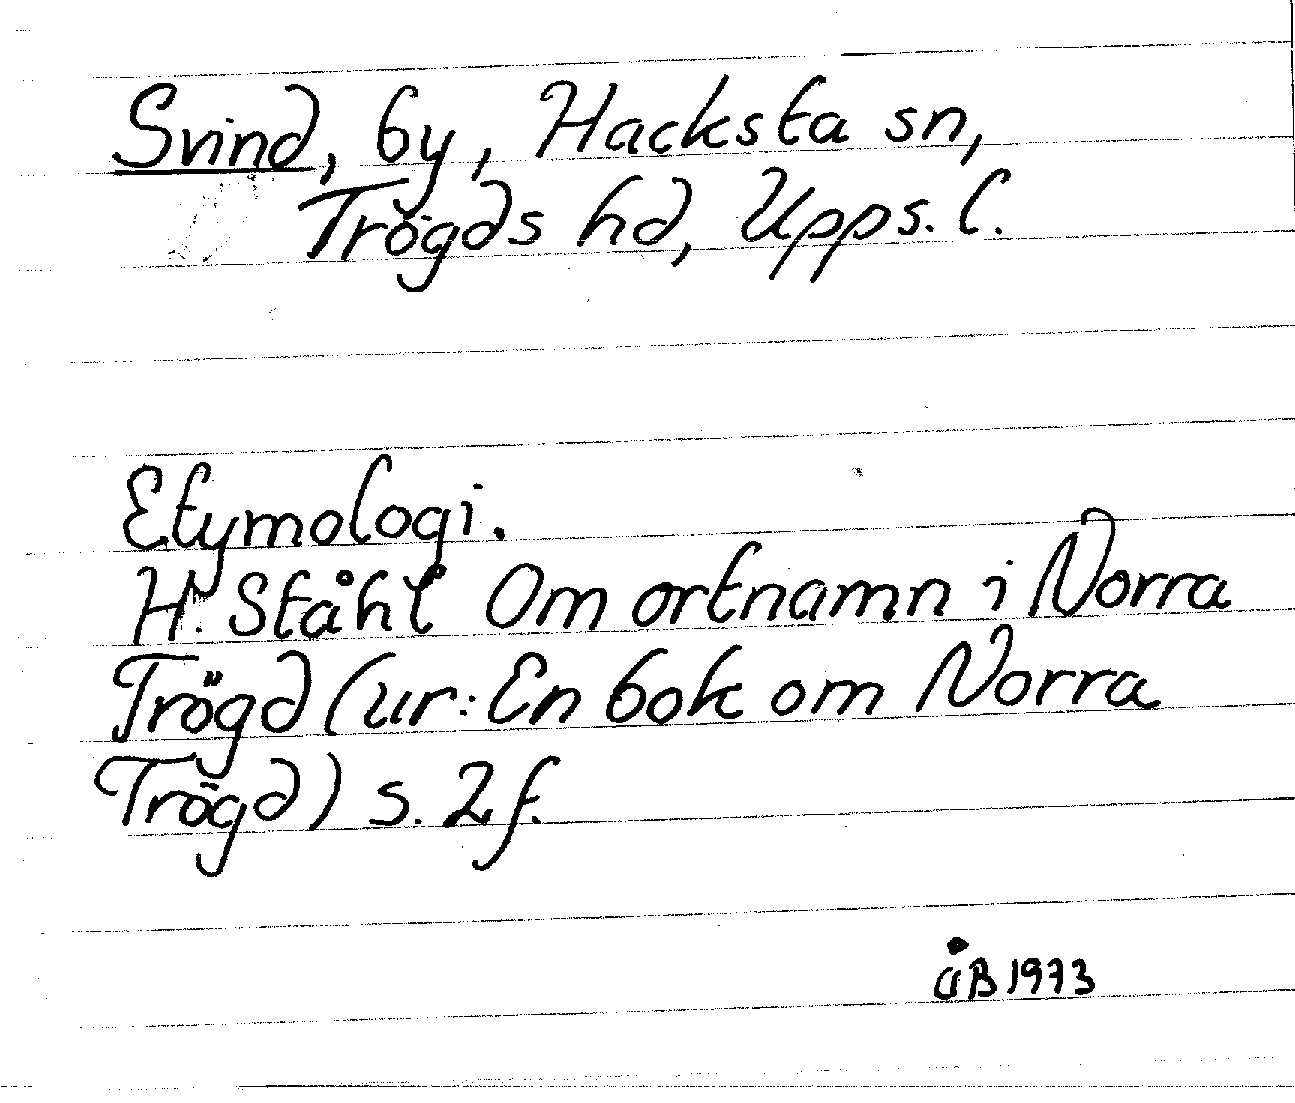 Svind, by, Hacksta sn,
Trögds hd, Upps. l.
Etymologi.
H. Ståhl Om ortnamn i Norra
Trögd (ur: En bok om Norra
Trögd) s. 2 f.
ÅB 1973